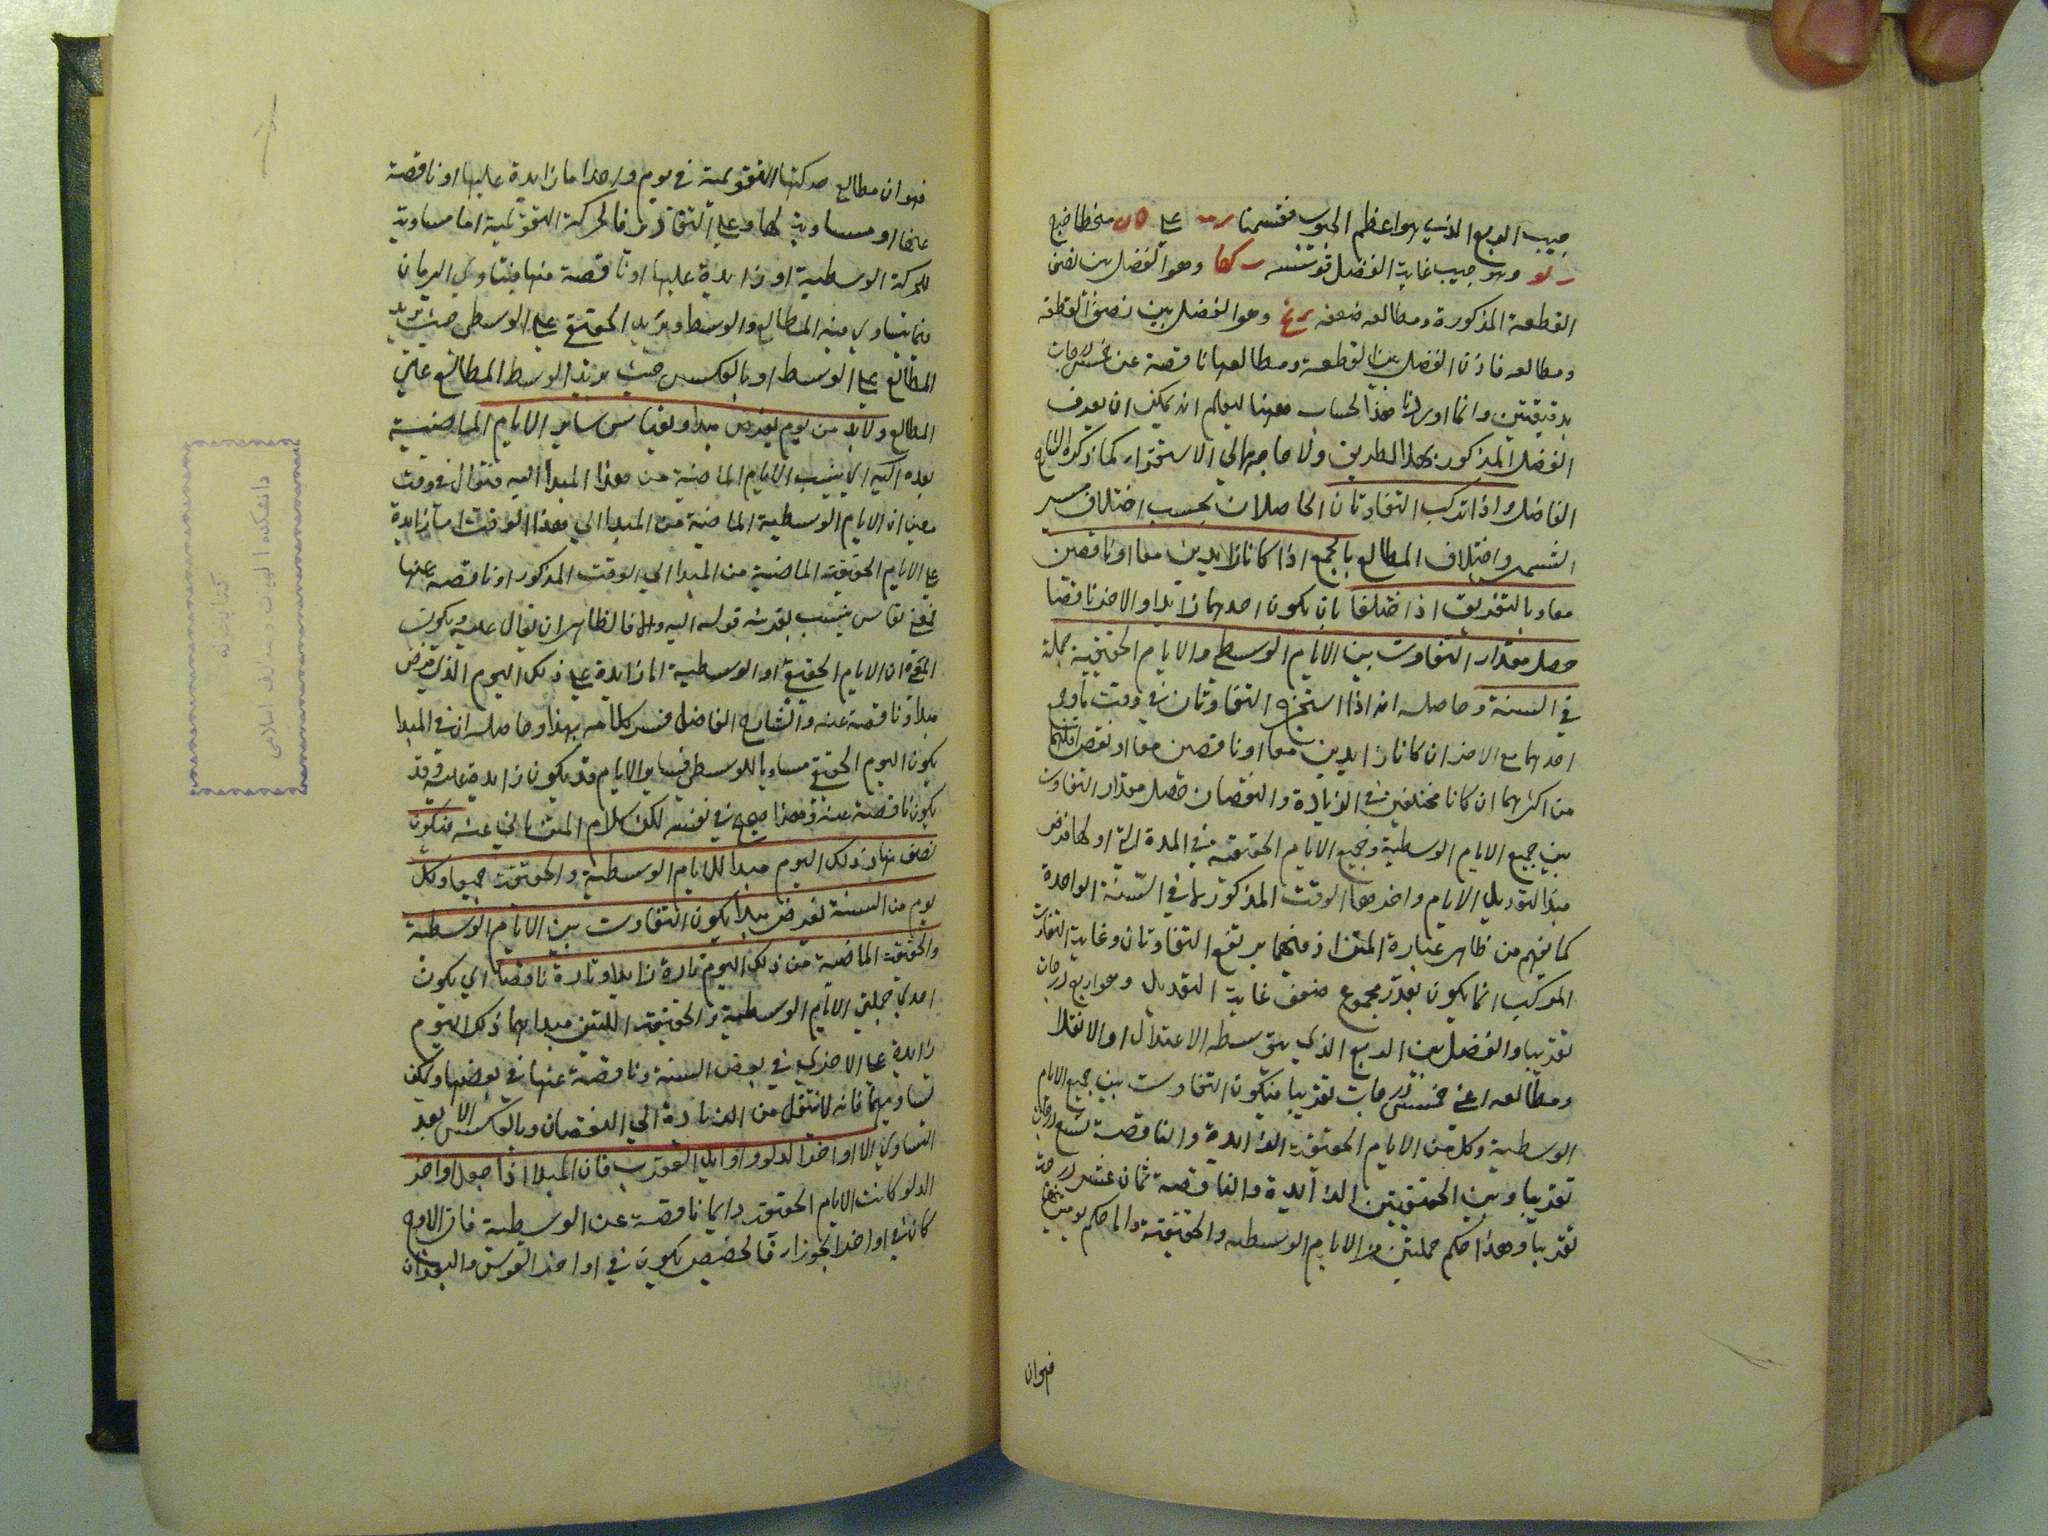 جيب الربع الذي هو اعظم الجيوب فقسمنا على منحطا خرج
وهو جيب غاية الفضل قوسه وهو الفضل بين نصفى
القطعة المذكورة ومطالعه ضعفه وهو الفضل بين نصفى القطعة
ومطالعه فاذن الفضل بين القطعة ومطالعها ناقصة عن خمس درجات
بدقيقتين وانما اوردنا هذا الحساب ههنا ليعلم انه يمكن ان يعرف
الفضل المذكور بهذا الطريق ولا حاجة الى الاستقراء كما ذكره الشارح
الفاضل واذا تركب التفاوتان الحاصلان بحسب اختلاف سير
الشمس واختلاف المطالع بالجمع اذا كانا زايدين معا او ناقصين
معا وبالتفريق اذا اختلفا بان يكون احدهما زايدا والاخر ناقصا
حصل مقدار التفاوت بين الايام الوسطى والايام الحقيقية جملة
في السنة وحاصله انه اذا استخرج التفاوتان في وقت
احدهما مع الاخر ان كانا زايدين معا او ناقصين معا او نقص اقلهما
من اكثرهما ان كانا مختلفين في الزيادة والنقصان حصل مقدار التفاوت
بين جميع الايام الوسطية وجميع الايام الحقيقية في المدة التي اولها فرض
مبدا لتعديل الايام واخرها الوقت المذكور لا في السنة الواحدة
كما يفهم من ظاهر عبارة المتن اذ فيها يرتفع التفاوتان وغاية التفاوت
المركب انما يكون بقدر مجموع ضعف غاية التعديل وهو اربع درجات
تقريبا والفضل بين الربع الذي يتوسطه الاعتدال او الانقلاب
ومطالعه اعني خمس درجات تقريبا فيكون التفاوت بين جميع الايام
الوسطية وكل من الايام الحقيقية الزايدة والناقصة تسع درجات
تقريبا وبين الحقيقيتين الزايدة والناقصة ثمان عشر درجة
تقريبا وهذا حكم جملتين من الايام الوسطية والحقيقية واما حكم يومين
فهوان
فهو ان مطالع حركتها التقويمية في يوم واحد اما زايدة عليها او ناقصة
عنها او مساوية لها وعلى التقادير فالحركة التقويمية اما مساوية
للحركة الوسطية او زايدة عليها او ناقصة منها فيتساوى اليومان
فيما يتساوى فيه المطالع والوسط ويزيد الحقيقي على الوسطى حيث يزيد
المطالع على الوسط او بالعكس حيث يزيد الوسط المطالع على
المطالع ولابد من يوم يفرض مبدا ويقاس ساير الايام الماضية
بعده اليه اي ينسب الايام الماضية من هذا المبدا اليه فيقال في وقت
معين ان الايام الوسطية الماضية من المبدا الى هذا الوقت اما زايدة
على الايام الحقيقية الماضية من المبدا الى الوقت المذكور او ناقصة عنها
فمعنى يقاس ينسب بقرينة قوله اليه والا فالظاهر ان يقال عليه ويكون
المعنى ان الايام الحقيقية او الوسطية اما زايدة على ذلك اليوم الذي فرض
مبدا او ناقصة عنه والشارح الفاضل فسر كلامه بهذا وحاصله ان في المبدا
يكون اليوم الحقيقي مساويا للوسطى فساير الايام قد يكون زايدة عليه وقد
يكون ناقصة عنه وهذا صحيح في نفسه لكن كلام المتن ابي عنه فيكون
نصف نهار ذلك اليوم مبدا للايام الوسطية والحقيقية جميعا وكل
يوم من السنة يفرض مبدا يكون التفاوت بين الايام الوسطية
والحقيقية الماضية من ذلك اليوم تارة زايدا وتارة ناقصا اي يكون
احدى جملتي الايام الوسطية والحقيقية اللتين مبداهما ذلك اليوم
زايدة على الاخرى في بعض السنة وناقصة عنها في بعضها ولكن
تساويهما فانه لا ينتقل من الزيادة الى النقصان وبالعكس الا بعد
التساوي الا اواخر الدلو واوايل العقرب فان المبدا اذا جعل اواخر
الدلو كانت الايام الحقيقية دايما ناقصة عن الوسطية فان الاوج
كان في اواخر الجوزا فالحضيض يكون في اواخر القوس والبعدان
كتابخانه
دانشكده الهيات و معارف اسلامى